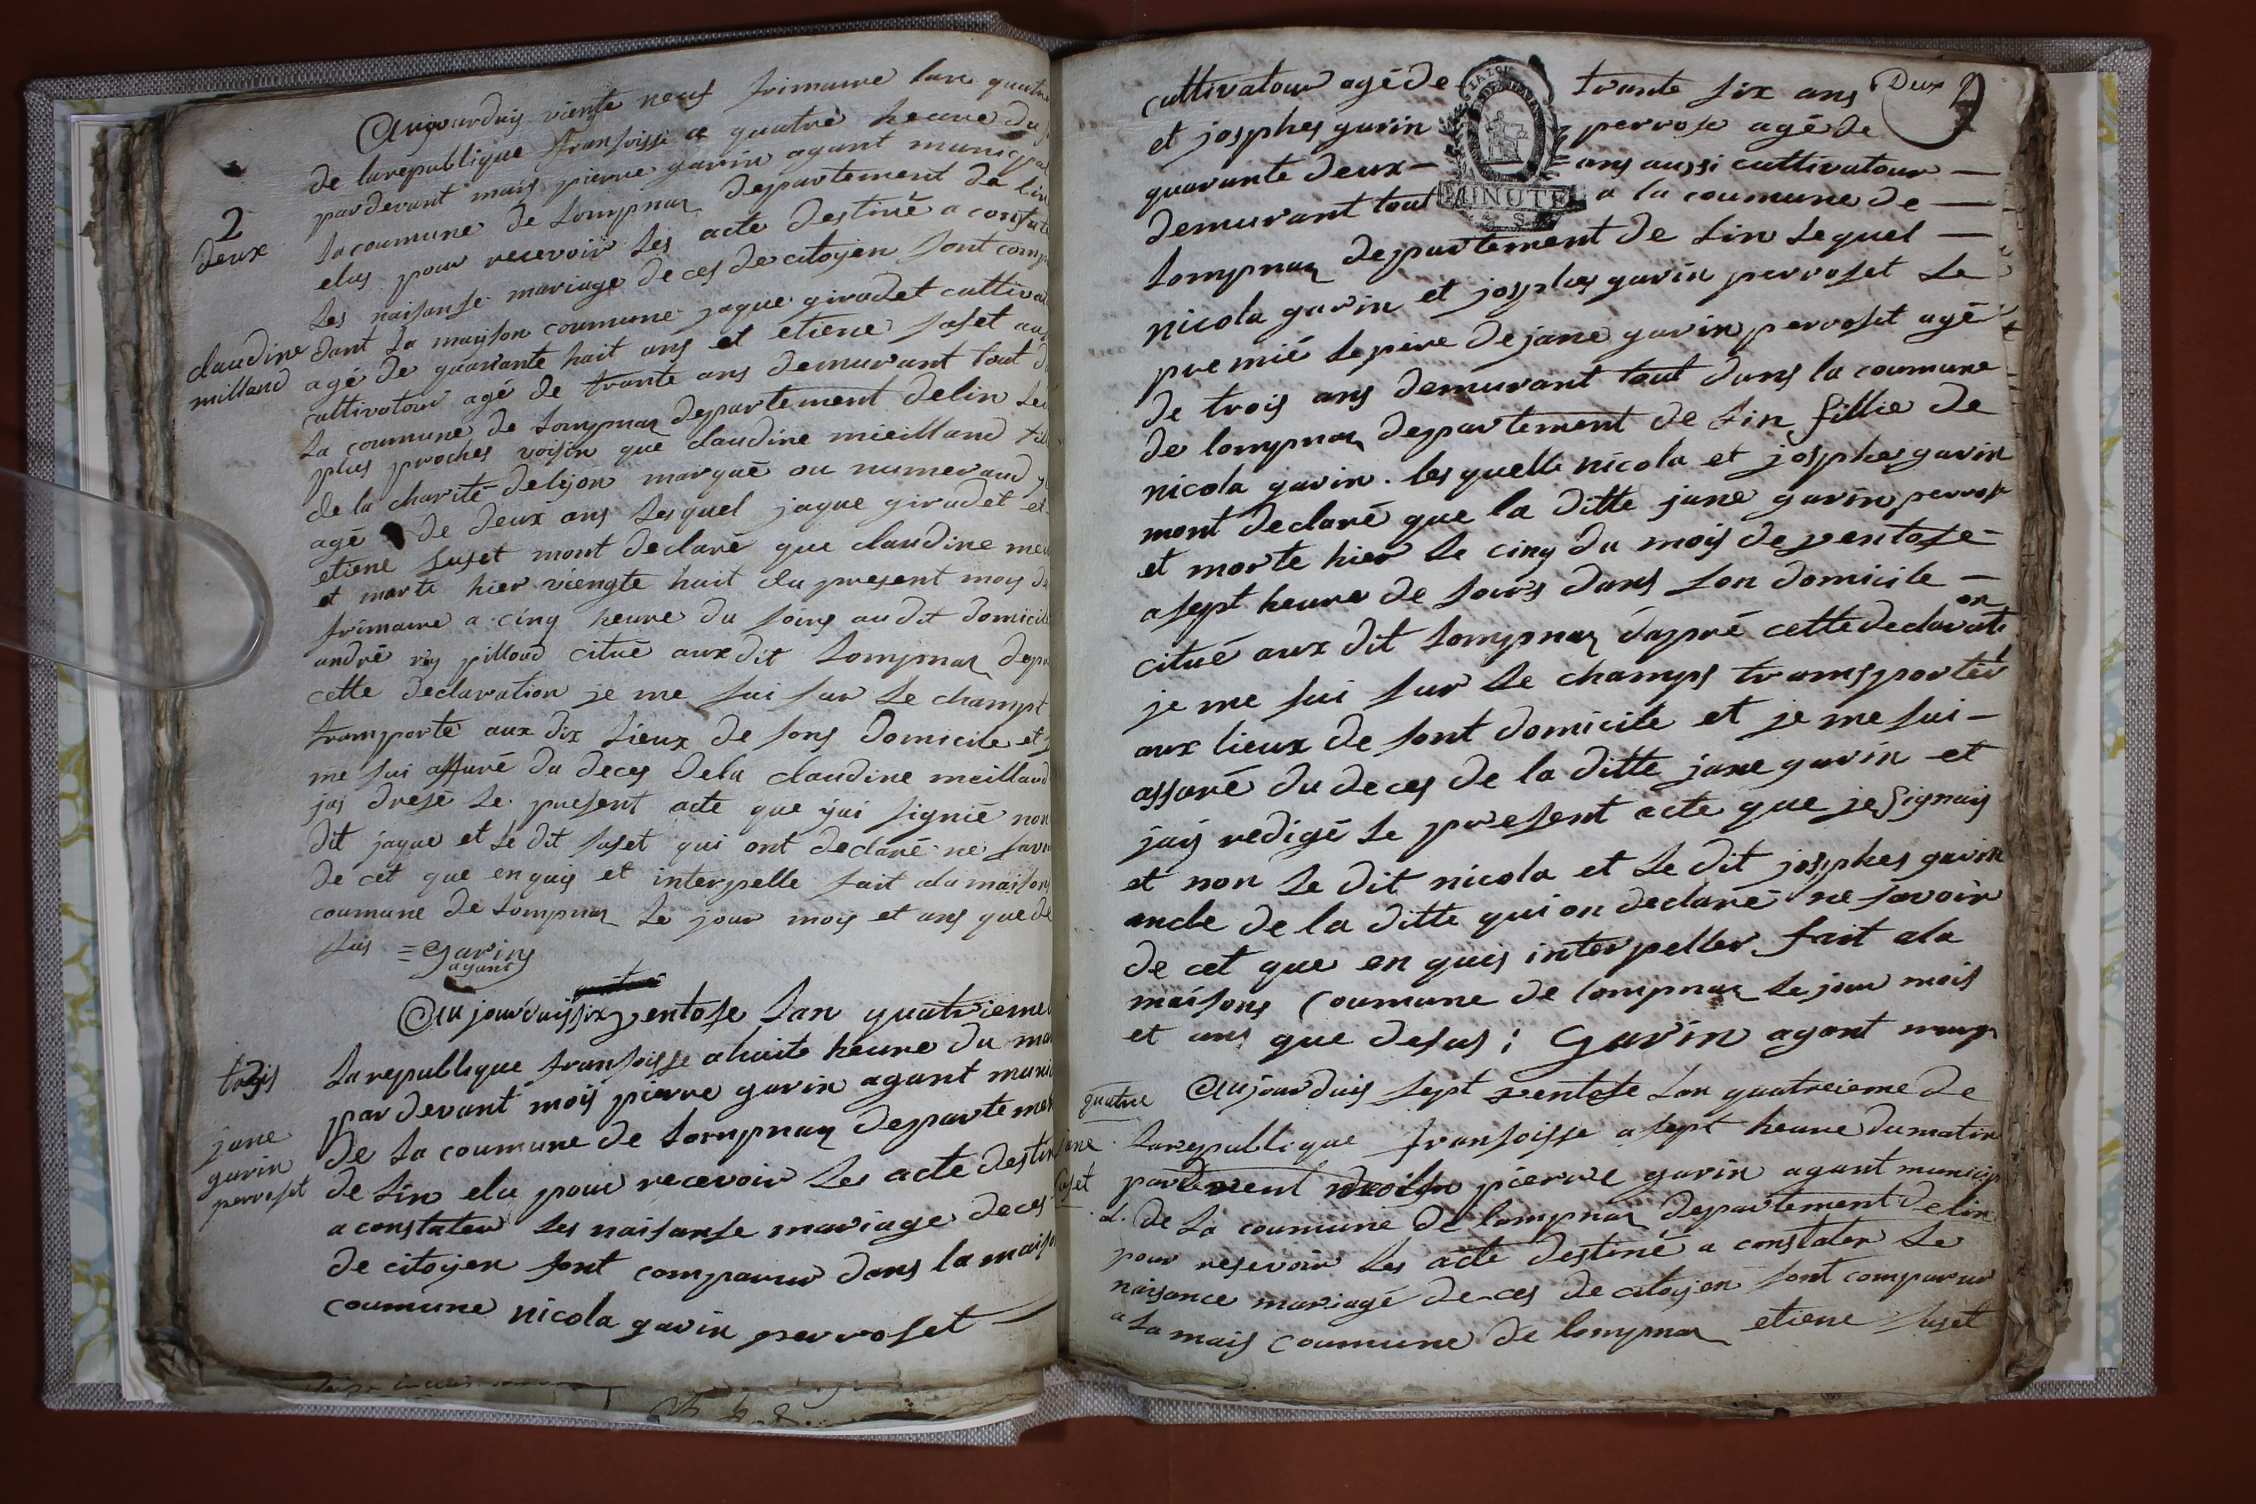 Aujourduy viente neuf frimaire lan quatre
de la republique fransoisse a quatre heure du
par devant mois pierre garin agant municipal
2
deux
la coumune de Lompnas departement de lin
elus pour recevoir les acte destiné a constate
Les naisanse mariage de ces de citoyen sont comp
claudine
millaud
dant la maison coumune jaque giradet cultivat
agé de quarante huit ans et etiene suset aus
cultivatour agé de trante ans demurant tout d
la coumune de Lompnas departement delin Les
plus proches voisin que claudine mieilland fil
de la charité de lyon marqué ou numeraud
agé de deux ans Lesquel jaque giradet et
etiene suset mont declaré que claudine me
et morte hier viengte huit du present mois d
frimaire a cinq heure du soirs au dit domicile
andré rey pilloud citué aux dit Lompnas dapr
cette declaration je me sui sur le champt
transporté aux dix Lieux de sons Domicile et j
me sui assuré du deces dela claudine meilland
jai dresé le present acte que jai signié non
dit jaque et le dit suset qui ont declaré ne savo
de cet que en quis et interpelle fait ala maisons
coumune de Lompnas le jour mois et ans que de
sus = garin
agant
Au jourduis six ventose Lan quatrieme
trois
3
La republique fransoisse a huite heure du ma
par devant mois pierre garin agant muni
jane
garin
perroset
de La coumune de Lompnas departemen
de Lin elu pour recevoir Les acte destin
a constater Les naisanse mariage deces
de citoyen sont comparur dans la maiso
coumune nicola garin perroset
Deux 2
cultivatour agé de trante six ans
et josphes garin perrose agé de
quarante deux - = ans aussi cultivatour
MINUTE
demurant tout a la coumune de
Lompnas departement de Lin Lequel
nicola garin et josphes garin perroset Le
premié Le pere de jane garin perroset agé
de trois ans demurant tout dans la coumune
de lompnas departement de Lin fillie de
nicola garin . les quelle nicola et josphes garin
mont declaré que la ditte jane garin perros
et morte hier le cinq du mois de ventose
a sept heure de soirs dans son domicile
citué aux dit Lompnas dapré cette declarati
on
je me sui sur le champs transportér
aux lieux de sont domicile et je me sui
assuré du deces de la ditte jane garin et
jais redigé le present acte que je signais
et non le dit nicola et le dit josphes garin
oncle de la ditte qui on declaré ne savoir
de cet que en quis interpeller fait ala
maisons coumune de lompnas le jour mois
et ans que desus ; Garin agant
quatre
Aujourduis sept ventose Lan quatreieme de
Larepublique fransoisse a sept heure du matin
jane
suset
pardevent pierre garin agant municip
de La coumune de lompnas departement delin
pour resevoir Les acte destiné a constater Le
naisance mariagé de ces de citoyen sont comparur
a La mais coumune de lompnas etiene suset